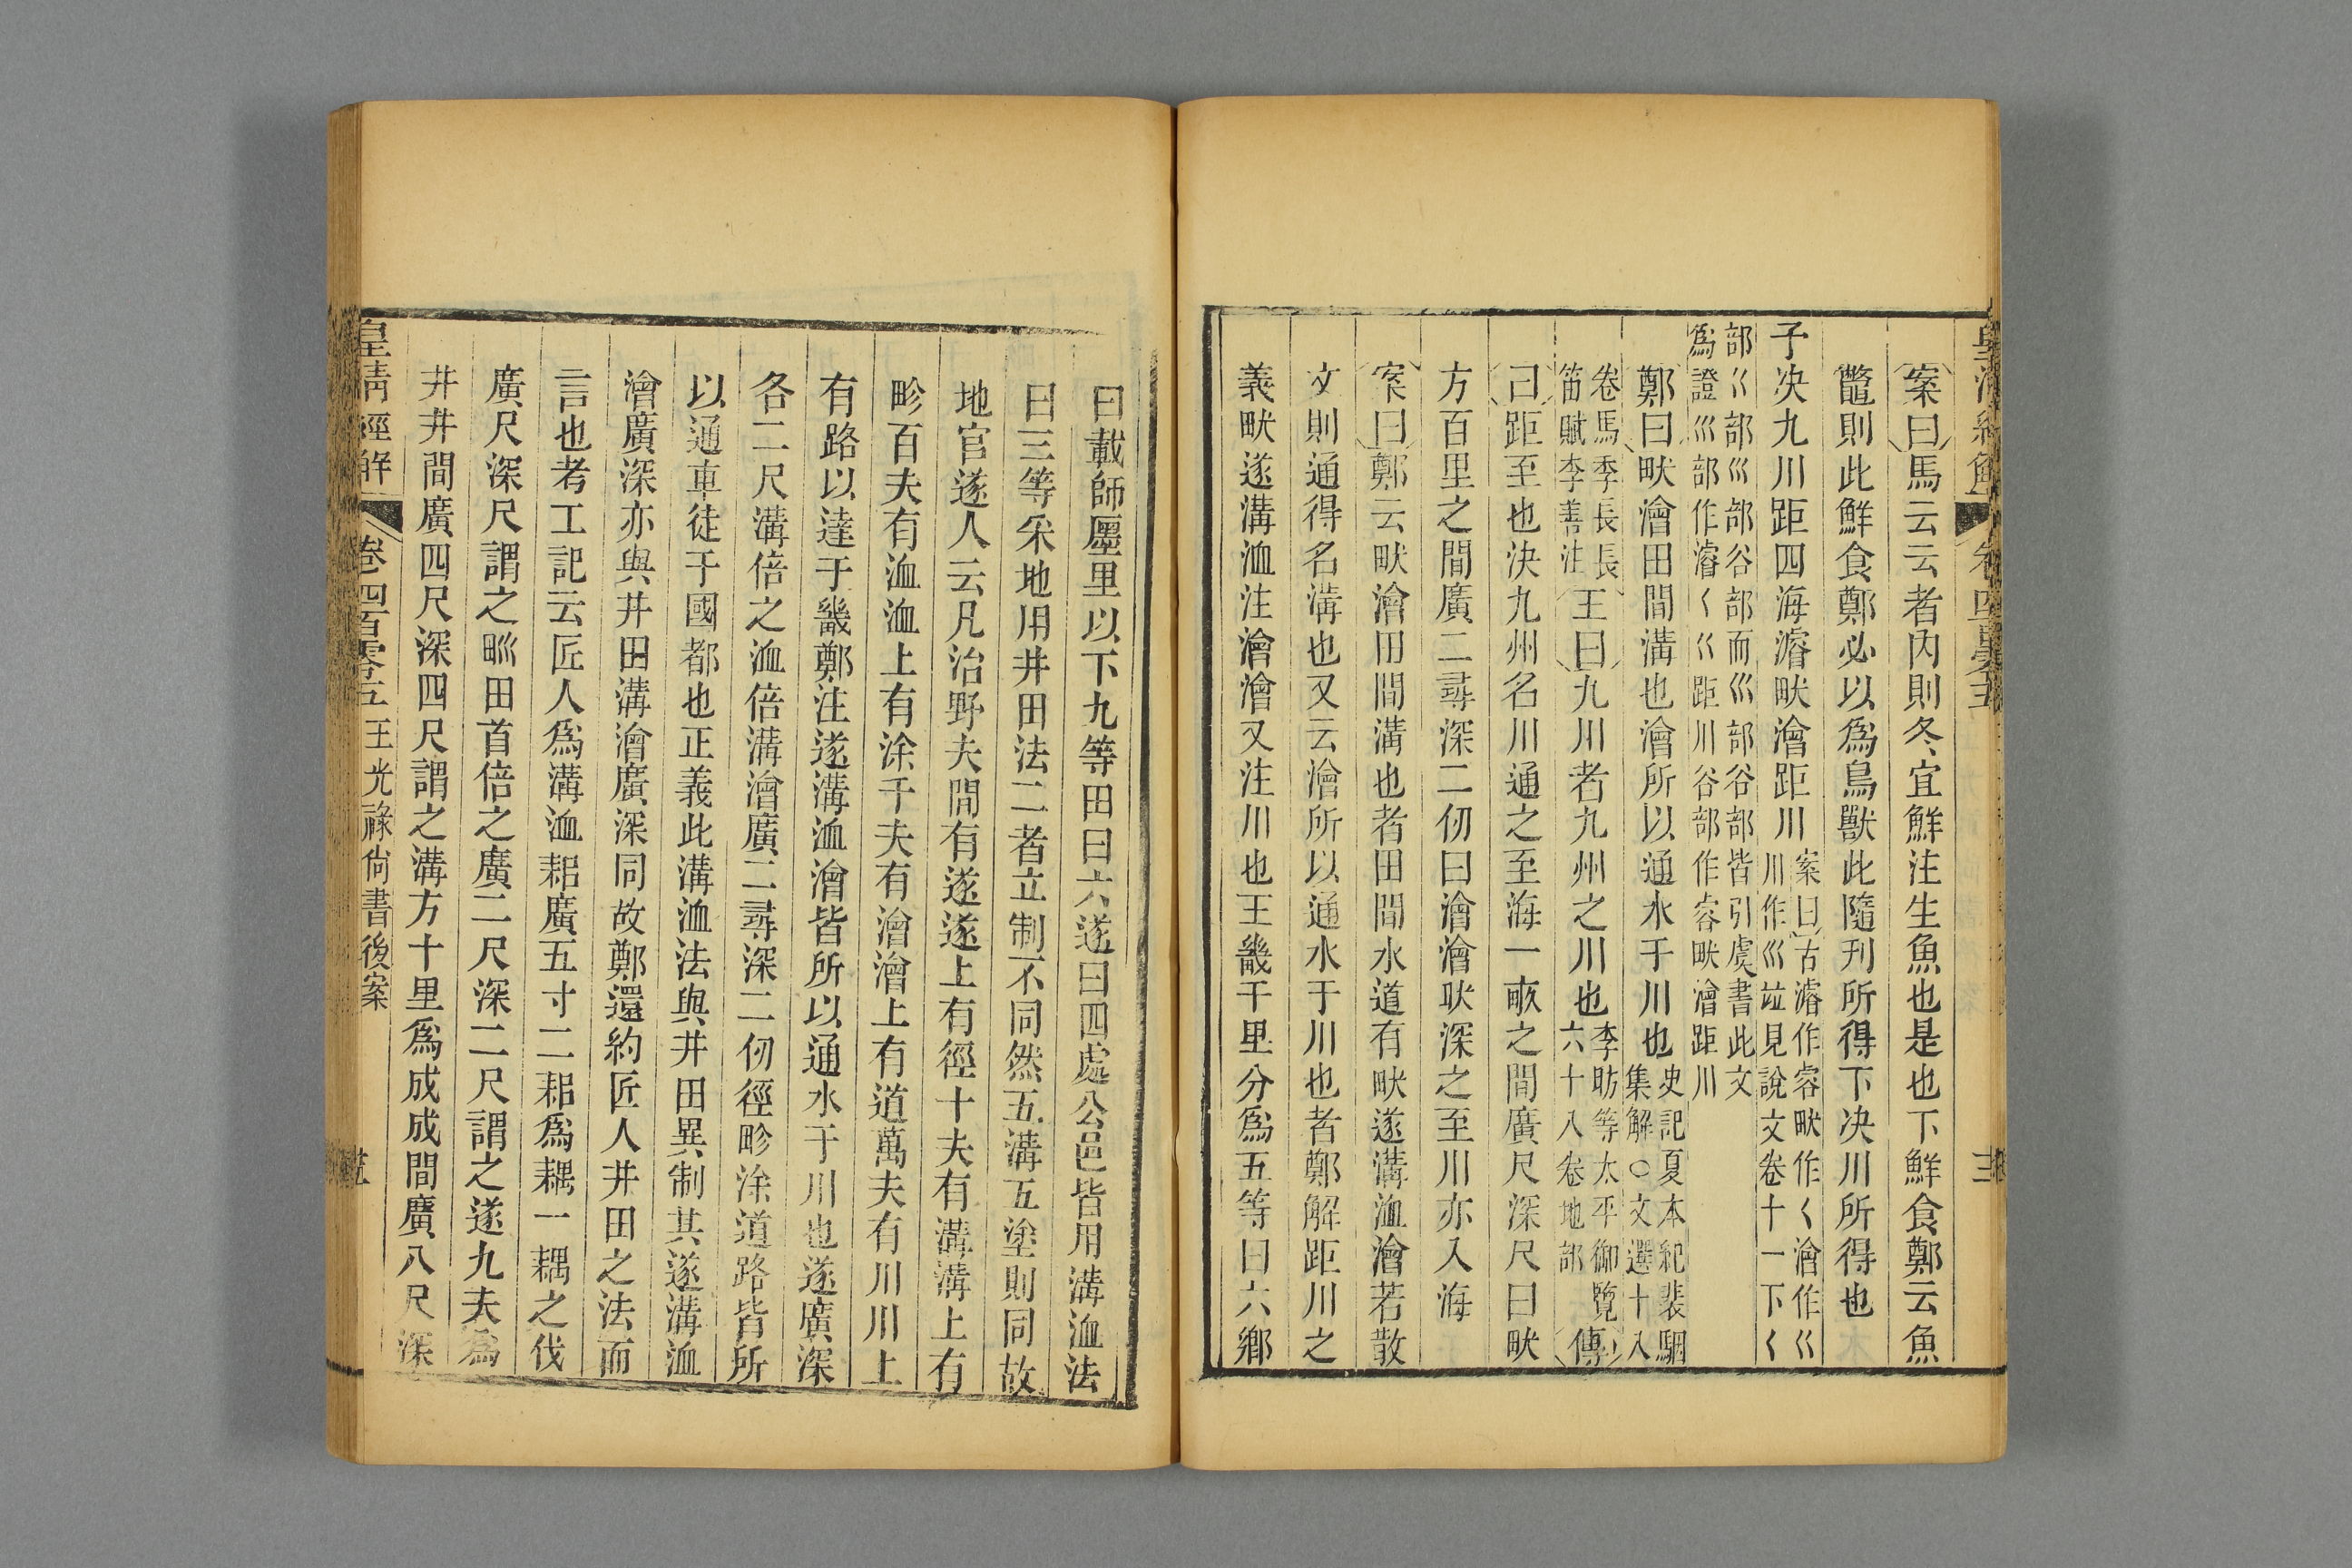 案曰馬云云者內則冬宜鮮注生魚也是也下鮮食鄭云魚
鼈則此鮮食鄭必以爲鳥獸此隨刊所得下決川所得也
子決九川距四海濬畎澮距川案曰古濬作容畎作𡿨澮作巜
川作巛竝見說文卷十一下𡿨
部巜部巛部谷部而巛部谷部皆引虞書此文
爲證巛部作濬𡿨巜距川谷部作容畎澮距川
鄭曰畎澮田間溝也澮所以通水于川也史記夏本紀裴駰
集解〇文選十八
卷馬季長長
笛賦李善注王曰九川者九州之川也李昉等太平御覽
六十八卷地部傳
曰距至也決九州名川通之至海一畝之間廣尺深尺曰畎
方百里之間廣二尋深二仞曰澮澮畎深之至川亦入海
案曰鄭云畎澮田間溝也者田間水道有畎遂溝洫澮若散
文則通得名溝也又云澮所以通水于川也者鄭解距川之
義畎遂溝洫注澮澮又注川也王畿千里分爲五等曰六鄉
曰載師廛里以下九等田曰六遂曰四處公邑皆用溝洫法
曰三等采地用井田法二者立制不同然五溝五塗則同故
地官遂人云凡治野夫間有遂遂上有徑十夫有溝溝上有
畛百夫有洫洫上有涂千夫有澮澮上有道萬夫有川川上
有路以達于畿鄭注遂溝洫澮皆所以通水于川也遂廣深
各二尺溝倍之洫倍溝澮廣二尋深二仞徑畛涂道路皆所
以通車徒于國都也正義此溝洫法與井田異制其遂溝洫
澮廣深亦與井田溝澮廣深同故鄭還約匠人井田之法而
言也考工記云匠人爲溝洫耜廣五寸二耜爲耦一耦之伐
廣尺深尺謂之𤰕田首倍之廣二尺深二尺謂之遂九夫爲
井井間廣四尺深四尺謂之溝方十里爲成成間廣八尺深
皇清經解 卷四百零五王光祿尙書後案